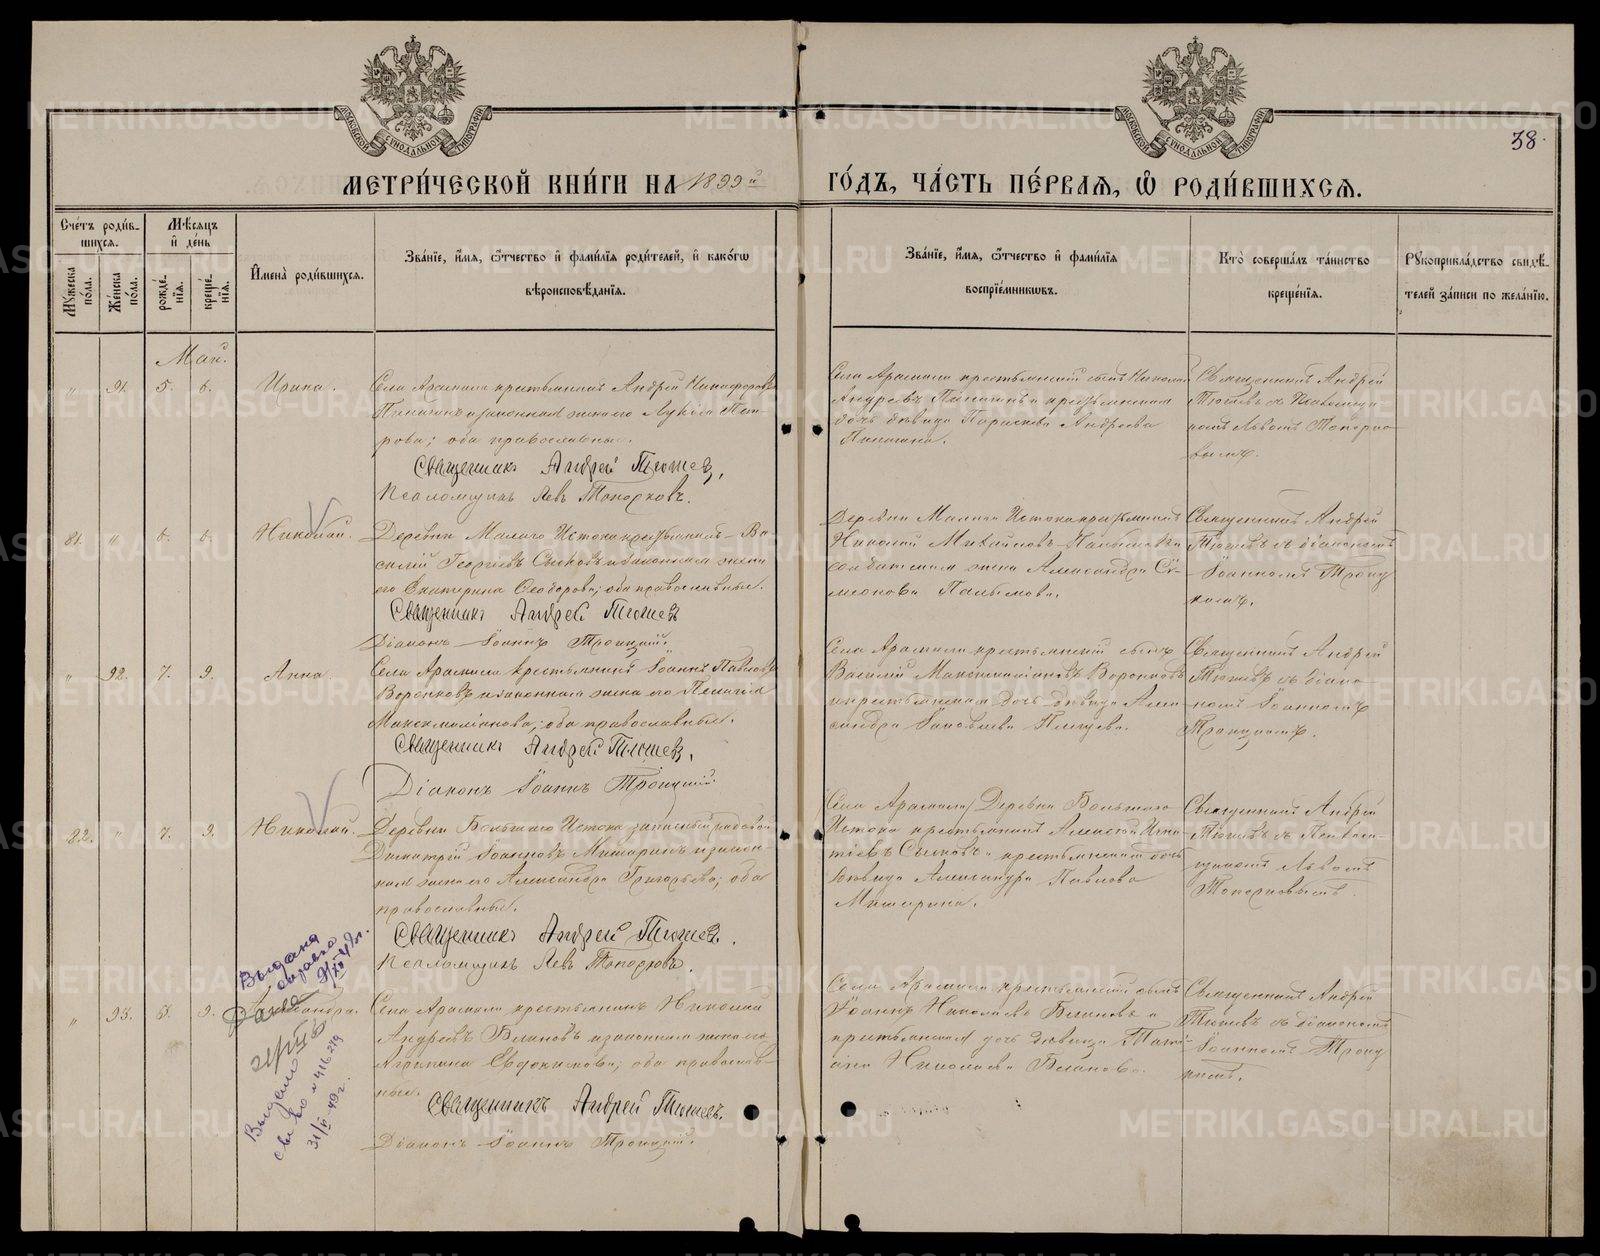 МОСКОВСКОЙ СѴНОДАЛЬНОЙ ТИПОГРАФІИ
МОСКОВСКОЙ СѴНОДАЛЬНОЙ ТИПОГРАФІИ
38.
МЕТРИ́ЧЕСКОЙ КНИ́ГИ НА 1899й
ГО́ДЪ, ЧА́СТЬ ПЕ́РВАѦ, Ѡ҆ РОДИ́ВШИХСѦ.
Сче́тъ роди́в-
шихсѧ.
Мꙋ́жеска по́ла.
Же́нска по́ла.
Мѣ́сѧцъ
и҆ де́нь
рожде́нїѧ.
креще́нїѧ.
И҆мена̀ роди́вшихсѧ.
Зва́нїе, и҆́мѧ, ѻ҆́тчество и҆ фами́лїѧ роди́телей, и҆ како́гѡ
вѣроисповѣ́данїѧ.
Зва́нїе, и҆́мѧ, ѻ҆́тчество и҆ фами́лїѧ
воспрїе́мникѡвъ.
Кто̀ соверша́лъ та́инство
креще́нїѧ.
Рꙋкоприкла́дство свидѣ́-
телей за́писи по жела́нїю.
Май.
" 91. 5. 6. Ирина.
Села Арамили крестьянинъ Андрей Никифоровъ
и законная жена его Лукія Пет-
рова; оба православные.
Священникъ Андрей Тюшев,
Псаломщикъ Левъ Топорковъ.
Села Арамили крестьянскій сынъ Николай
Андреевъ и крестьянская
дочь девица Параскева Андреева
Священникъ Андрей
Тюшевъ съ Псаломщи-
комъ Львомъ Топорко-
вымъ.
81. " 6. 6. Николай.
Деревни Малаго Истока крестьянинъ Ва-
силій Георгіевъ и законная жена
его Екатерина Ѳеодорова; оба православные.
Священникъ Андрей Тюшев
Діаконъ Іоаннъ Троицкій.
Деревни Малаго Истока крестьянинъ
Николай Михайловъ и
солдатская жена Александра Си-
меонова
Священникъ Андрей
Тюшевъ съ діакономъ
Іоанномъ Троиц
кимъ.
" 92. 7. 9. Анна.
Села Арамили крестьянинъ Іоаннъ Павловъ
Воронковъ и законная жена его Пелагія
Максимиліанова; оба православные.
Священникъ Андрей Тюшев,
Діаконъ Іоаннъ Троицкій.
Села Арамили крестьянскій сынъ
Василій Максимиліановъ Воронковъ
и крестьянская дочь девица Алек
сандра Іаковлева
Священникъ Андрей
Тюшевъ съ діако-
номъ Іоанномъ
Троицкимъ.
82. " 7. 9. Николай.
Деревни Большаго Истока запасный рядовой
Димитрій Іоанновъ Мишаринъ и закон-
ная жена его Александра Григорьева; оба
православные.
Священникъ Андрей Тюшев.
Псаломщикъ Левъ Топорковъ.
Села Арамили/Деревни Большаго
Истока крестьянинъ Алексей Игна
тіевъ и крестьянская дочь
девица Александра Павлова
Мишарина.
Священникъ Андрей
Тюшевъ съ Псалом-
щикомъ Львомъ
Топорковымъ.
Выдана
справка
" 93. 8. 9. Александра.
Села Арамили крестьянинъ Николай
Андреевъ и законная жена его
Агрипина Евдокимова; оба православ-
ные.
Священникъ Андрей Тюшев.
Діаконъ Іоаннъ Троицкій.
Села Арамили крестьянскій сынъ
Іоаннъ Николаевъ и
крестьянская дочь девица Тать-
яна Николаева
Священникъ Андрей
Тюшевъ съ діакономъ
Іоанномъ Троиц
кимъ.
Выдано
св-во
METRIKI.GASO-URAL.RU